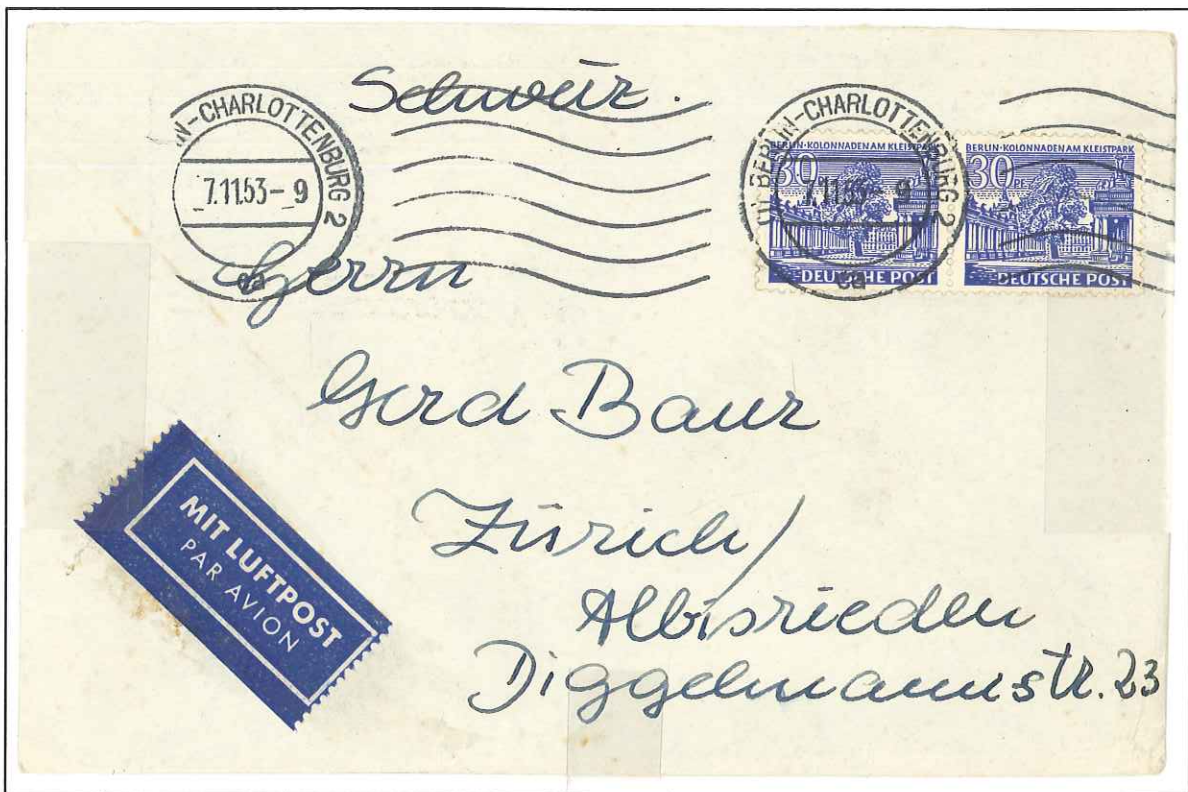 Schweiz.
N-CHARLOTTENBURG 2
7.11.53-9
ca
BERLIN-CHARLOTTENBURG 2
7.11.53-9
ca
BERLIN·KOLONNADEN AM KLEISTPARK
30
DEUTSCHE POST
BERLIN·KOLONNADEN AM KLEISTPARK
30 PF
DEUTSCHE POST
Herrn
Gerd Baur
Zürich/
Albisrieden
Diggelmannstr. 23
MIT LUFTPOST
PAR AVION